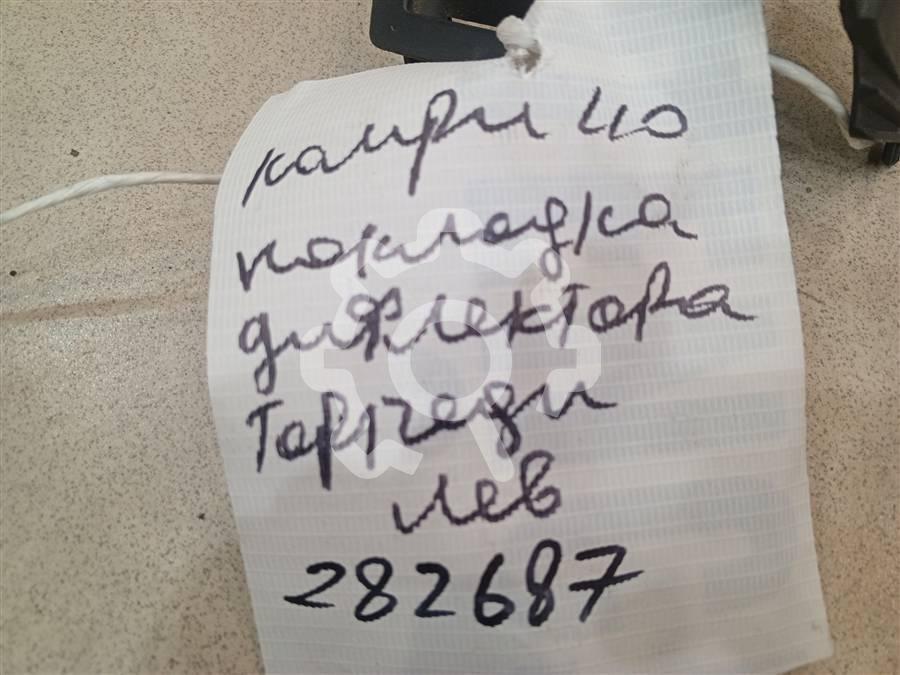 камри 40
накладка
дифлектора
Торпеди
лев
282687